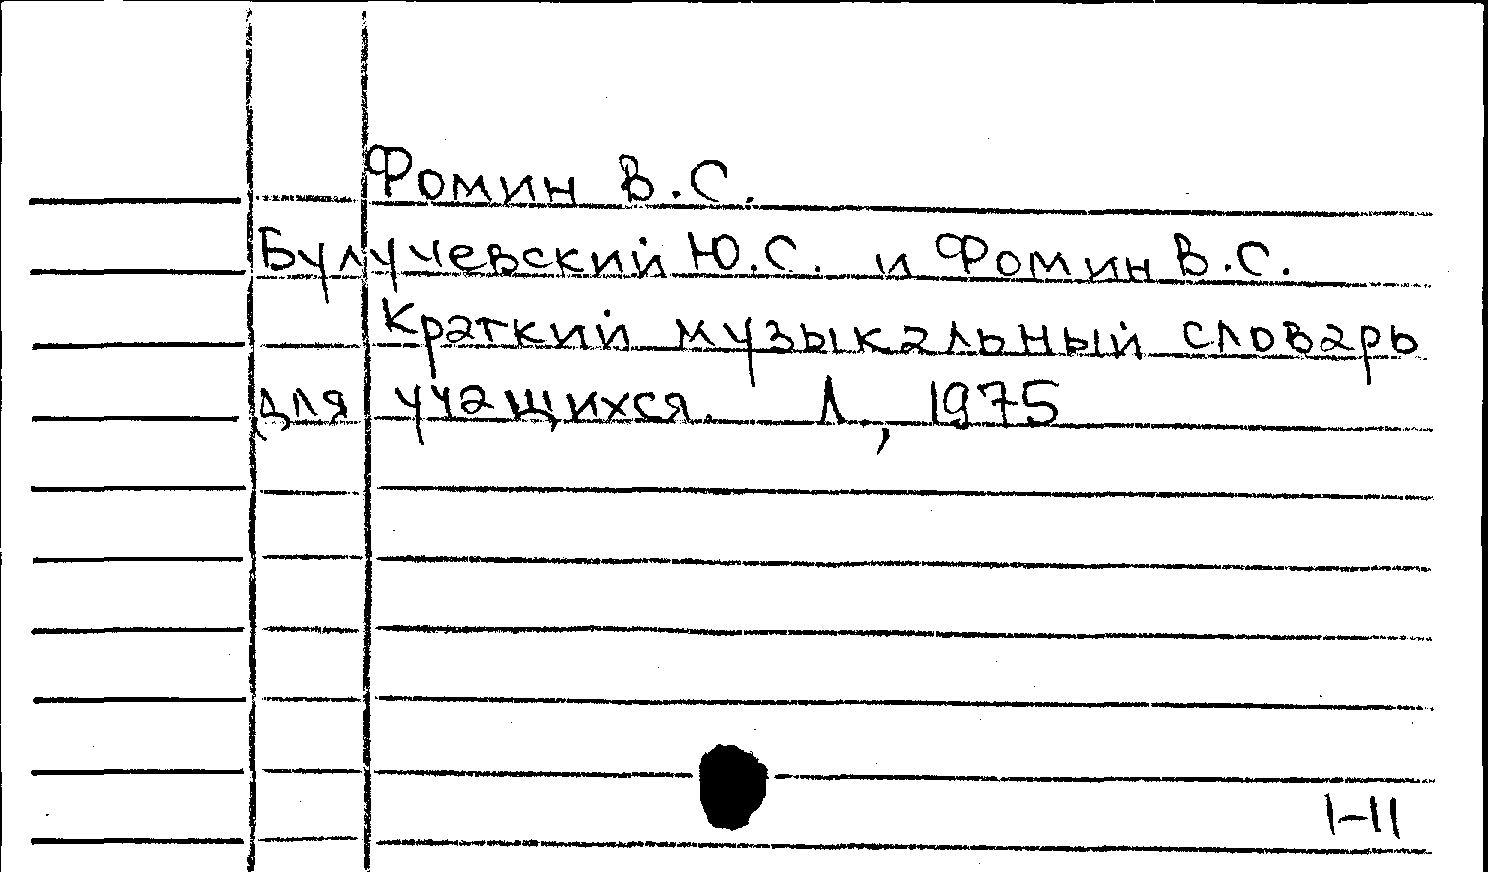 Фомин В.С.
Булучевский Ю.С. и Фомин В.С.
Краткий музыкальный словарь
для учащихся. Л, 1975
1-11